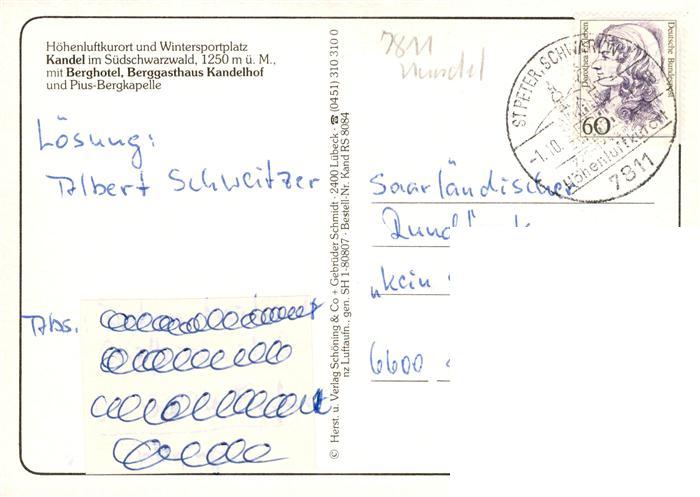 Höhenluftkurort und Wintersportplatz
Kandel im Südschwarzwald, 1250 m ü. M.,
mit Berghotel, Berggasthaus Kandelhof
und Pius-Bergkapelle
7811
Lösung:
Albert Schweitzer
Abs.
© Herst. u. Verlag Schöning & Co + Gebrüder Schmidt · 2400 Lübeck ☎ (0451) 310 310 0
nz Luftaufn., gen. SH 1-80807 · Bestell-Nr. Kand RS 8084
Deutsche Bundespost
60
ST PETER, SCHWARZW
-1.10.
Höhenluftkurort
7811
Saarländischer
"kein
6600